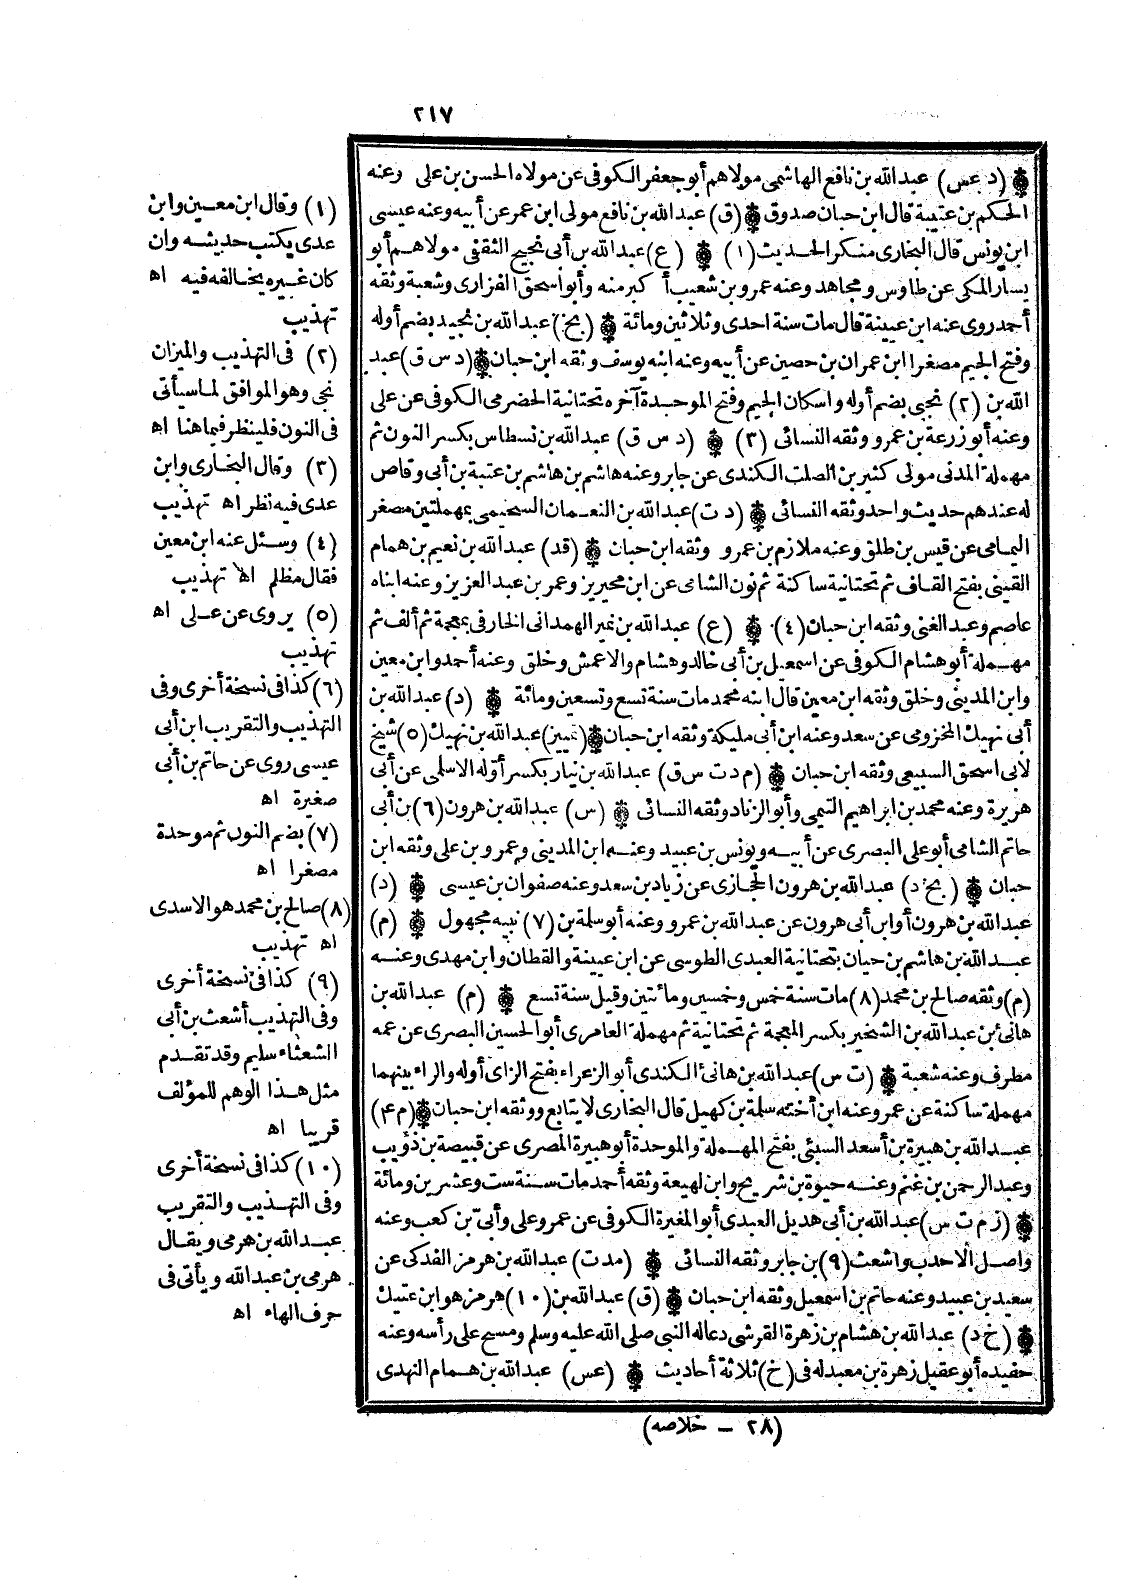 ٢١٧
(د عس) عبد الله بن نافع الهاشمي مولاهم أبو جعفر الكوفي عن مولاه الحسن بن علي وعنه
الحكم بن عتيبة قال ابن حبان صدوق (ق) عبد الله بن نافع مولى ابن عمر عن أبيه وعنه عيسى
ابن يونس قال البخاري منكر الحديث (١) (ع) عبد الله بن أبي نجيح الثقفي مولاهم أبو
يسار المكي عن طاوس ومجاهد وعنه عمرو بن شعيب أكبر منه وأبو اسحق الفزاري وشعبة وثقه
أحمد روى عنه ابن عيينة قال مات سنة احدى وثلاثين ومائة (بخ) عبد الله بن نجيد بضم أوله
وفتح الجيم مصغرا ابن عمران بن حصين عن أبيه وعنه ابنه يوسف وثقه ابن حبان (د س ق) عبد
الله بن (٢) نجى بضم أوله واسكان الجيم وفتح الموحدة آخره تحتانية الحضرمي الكوفي عن علي
وعنه أبو زرعة بن عمرو وثقه النسائي (٣) (د س ق) عبد الله بن نسطاس بكسر النون ثم
مهملة المدني مولى كثير بن الصلت الكندي عن جابر وعنه هاشم بن هاشم بن عتبة بن أبي وقاص
له عندهم حديث واحد وثقه النسائي (د ت) عبد الله بن النعمان السحيمي بمهملتين مصغر
اليمامي عن قيس بن طلق وعنه ملازم بن عمرو وثقه ابن حبان (قد) عبد الله بن نعيم بن همام
القيني بفتح القاف ثم تحتانية ساكنة ثم نون الشامي عن ابن محيريز وعمر بن عبد العزيز وعنه ابناه
عاصم وعبد الغني وثقه ابن حبان (٤) (ع) عبد الله بن نمير الهمداني الخارفي بمعجمة ثم ألف ثم
مهملة أبو هشام الكوفي عن اسمعيل بن أبي خالد وهشام والاعمش وخلق وعنه أحمد وابن معين
وابن المديني وخلق وثقه ابن معين قال ابنه محمد مات سنة تسع وتسعين ومائة (د) عبد الله بن
أبي نهيك المخزومي عن سعد وعنه ابن أبي مليكة وثقه ابن حبان (تمييز) عبد الله بن نهيك (٥) شيخ
لابي اسحق السبيعي وثقه ابن حبان (م د ت س ق) عبد الله بن نيار بكسر أوله الاسلمي عن أبي
هريرة وعنه محمد بن ابراهيم التيمي وأبو الزناد وثقه النسائي (س) عبد الله بن هرون (٦) بن أبي
حاتم الشامي أبو علي البصري عن أبيه ويونس بن عبيد وعنه ابن المديني وعمرو بن علي وثقه ابن
حبان (بخ د) عبد الله بن هرون الحجازي عن زياد بن سعد وعنه صفوان بن عيسى (د)
عبد الله بن هرون أو ابن أبي هرون عن عبد الله بن عمرو وعنه أبو سلمة بن (٧) نبيه مجهول (م)
عبد الله بن هاشم بن حيان بتحتانية العبدي الطوسي عن ابن عيينة والقطان وابن مهدي وعنه
(م) وثقه صالح بن محمد (٨) مات سنة خمس وخمسين ومائتين وقيل سنة تسع (م) عبد الله بن
هانئ بن عبد الله بن الشخير بكسر المعجمة ثم تحتانية ثم مهملة العامري أبو الحسين البصري عن عمه
مطرف وعنه شعبة (ت س) عبد الله بن هانئ الكندي أبو الزعراء بفتح الزاي أوله والراء بينهما
مهملة ساكنة عن عمر وعنه ابن أخته سلمة بن كهيل قال البخاري لا يتابع ووثقه ابن حبان (م ٤)
عبد الله بن هبيرة بن أسعد السبئي بفتح المهملة والموحدة أبو هبيرة المصري عن قبيصة بن ذؤيب
وعبد الرحمن بن غنم وعنه حيوة بن شريح وابن لهيعة وثقه أحمد مات سنة ست وعشرين ومائة
(ز م ت س) عبد الله بن أبي هذيل العبدي أبو المغيرة الكوفي عن عمر وعلي وأبيّ بن كعب وعنه
واصل الأحدب واشعث (٩) بن جابر وثقه النسائي (مد ت) عبد الله بن هرمز الفدكي عن
سعيد بن عبيد وعنه حاتم بن اسمعيل وثقه ابن حبان (ق) عبد الله بن (١٠) هرمز هو ابن عتيك
(خ د) عبد الله بن هشام بن زهرة القرشي دعا له النبي صلى الله عليه وسلم ومسح على رأسه وعنه
حفيده أبو عقيل زهرة بن معبد له في (خ) ثلاثة أحاديث (عس) عبد الله بن همام النهدي
(١) وقال ابن معين وابن
عدي يكتب حديثه وان
كان غيره يخالفه فيه اه
تهذيب
(٢) في التهذيب والميزان
نجي وهو الموافق لما سيأتي
في النون فلينظر فيما هنا اه
(٣) وقال البخاري وابن
عدي فيه نظر اه تهذيب
(٤) وسئل عنه ابن معين
فقال مظلم اه تهذيب
(٥) يروي عن علي اه
تهذيب
(٦) كذا في نسخة أخرى وفي
التهذيب والتقريب ابن أبي
عيسى روى عن حاتم بن أبي
صغيرة اه
(٧) بضم النون ثم موحدة
مصغرا اه
(٨) صالح بن محمد هو الاسدي
اه تهذيب
(٩) كذا في نسخة أخرى
وفي التهذيب أشعث بن أبي
الشعثاء سليم وقد تقدم
مثل هذا الوهم للمؤلف
قريبا اه
(١٠) كذا في نسخة أخرى
وفي التهذيب والتقريب
عبد الله بن هرمي ويقال
هرمي بن عبد الله ويأتي في
حرف الهاء اه
(٢٨ – خلاصه)